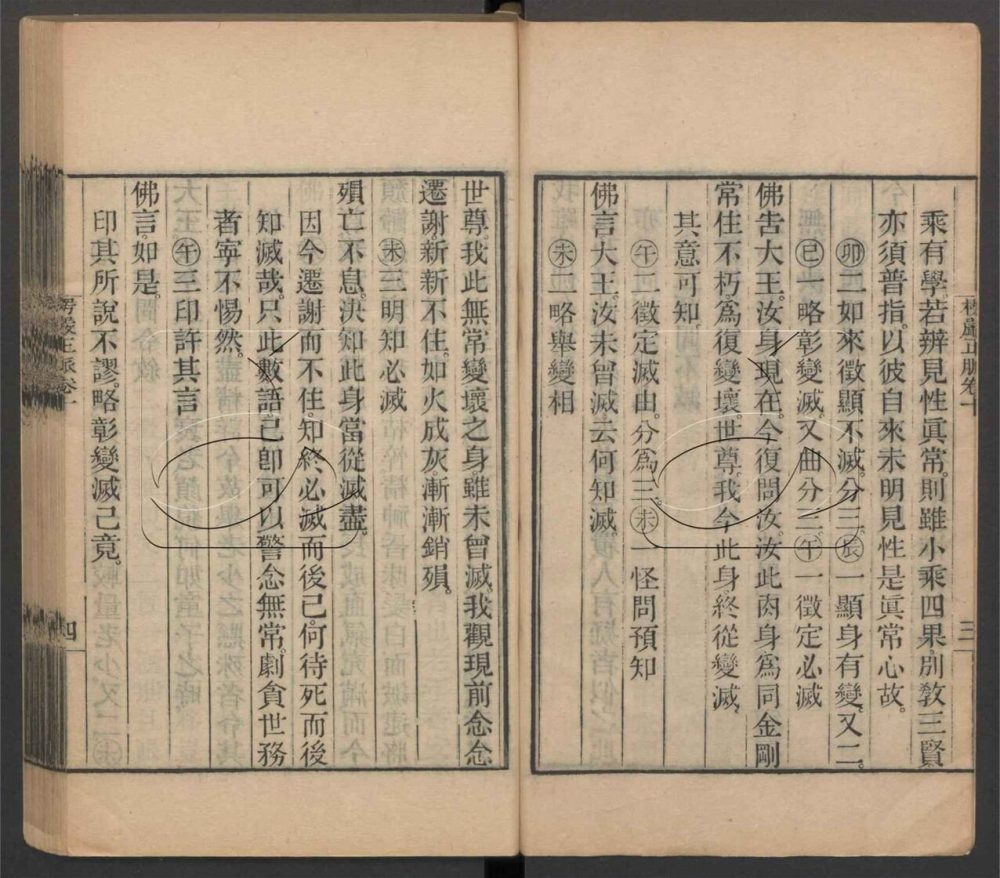 楞嚴正脈卷十
三
乘有學若辨見性眞常則雖小乘四果別敎三賢
亦須普指以彼自來未明見性是眞常心故。
㊞卯二如來徵顯不滅。分三。辰一顯身有變。又二。
巳一略彰變滅。又曲分三。午一徵定必滅
佛吿大王。汝身現在。今復問汝。汝此肉身爲同金剛
常住不朽。爲復變壞。世尊。我今此身。終從變滅。
其意可知。
午二徵定滅由。分爲三。未一怪問預知
佛言大王。汝未曾滅。云何知滅。
未二略舉變相
世尊。我此無常變壞之身。雖未曾滅。我觀現前。念念
遷謝。新新不住。如火成灰。漸漸銷殞。
未三明知必滅
殞亡不息。決知此身。當從滅盡。
因今遷謝而不住。知終必滅而後已。何待死而後
知滅哉。只此數語。已卽可以警念無常。劇貪世務
者。寧不惕然。
午三印許其言
佛言。如是。
印其所說不謬。略彰變滅已竟。
四